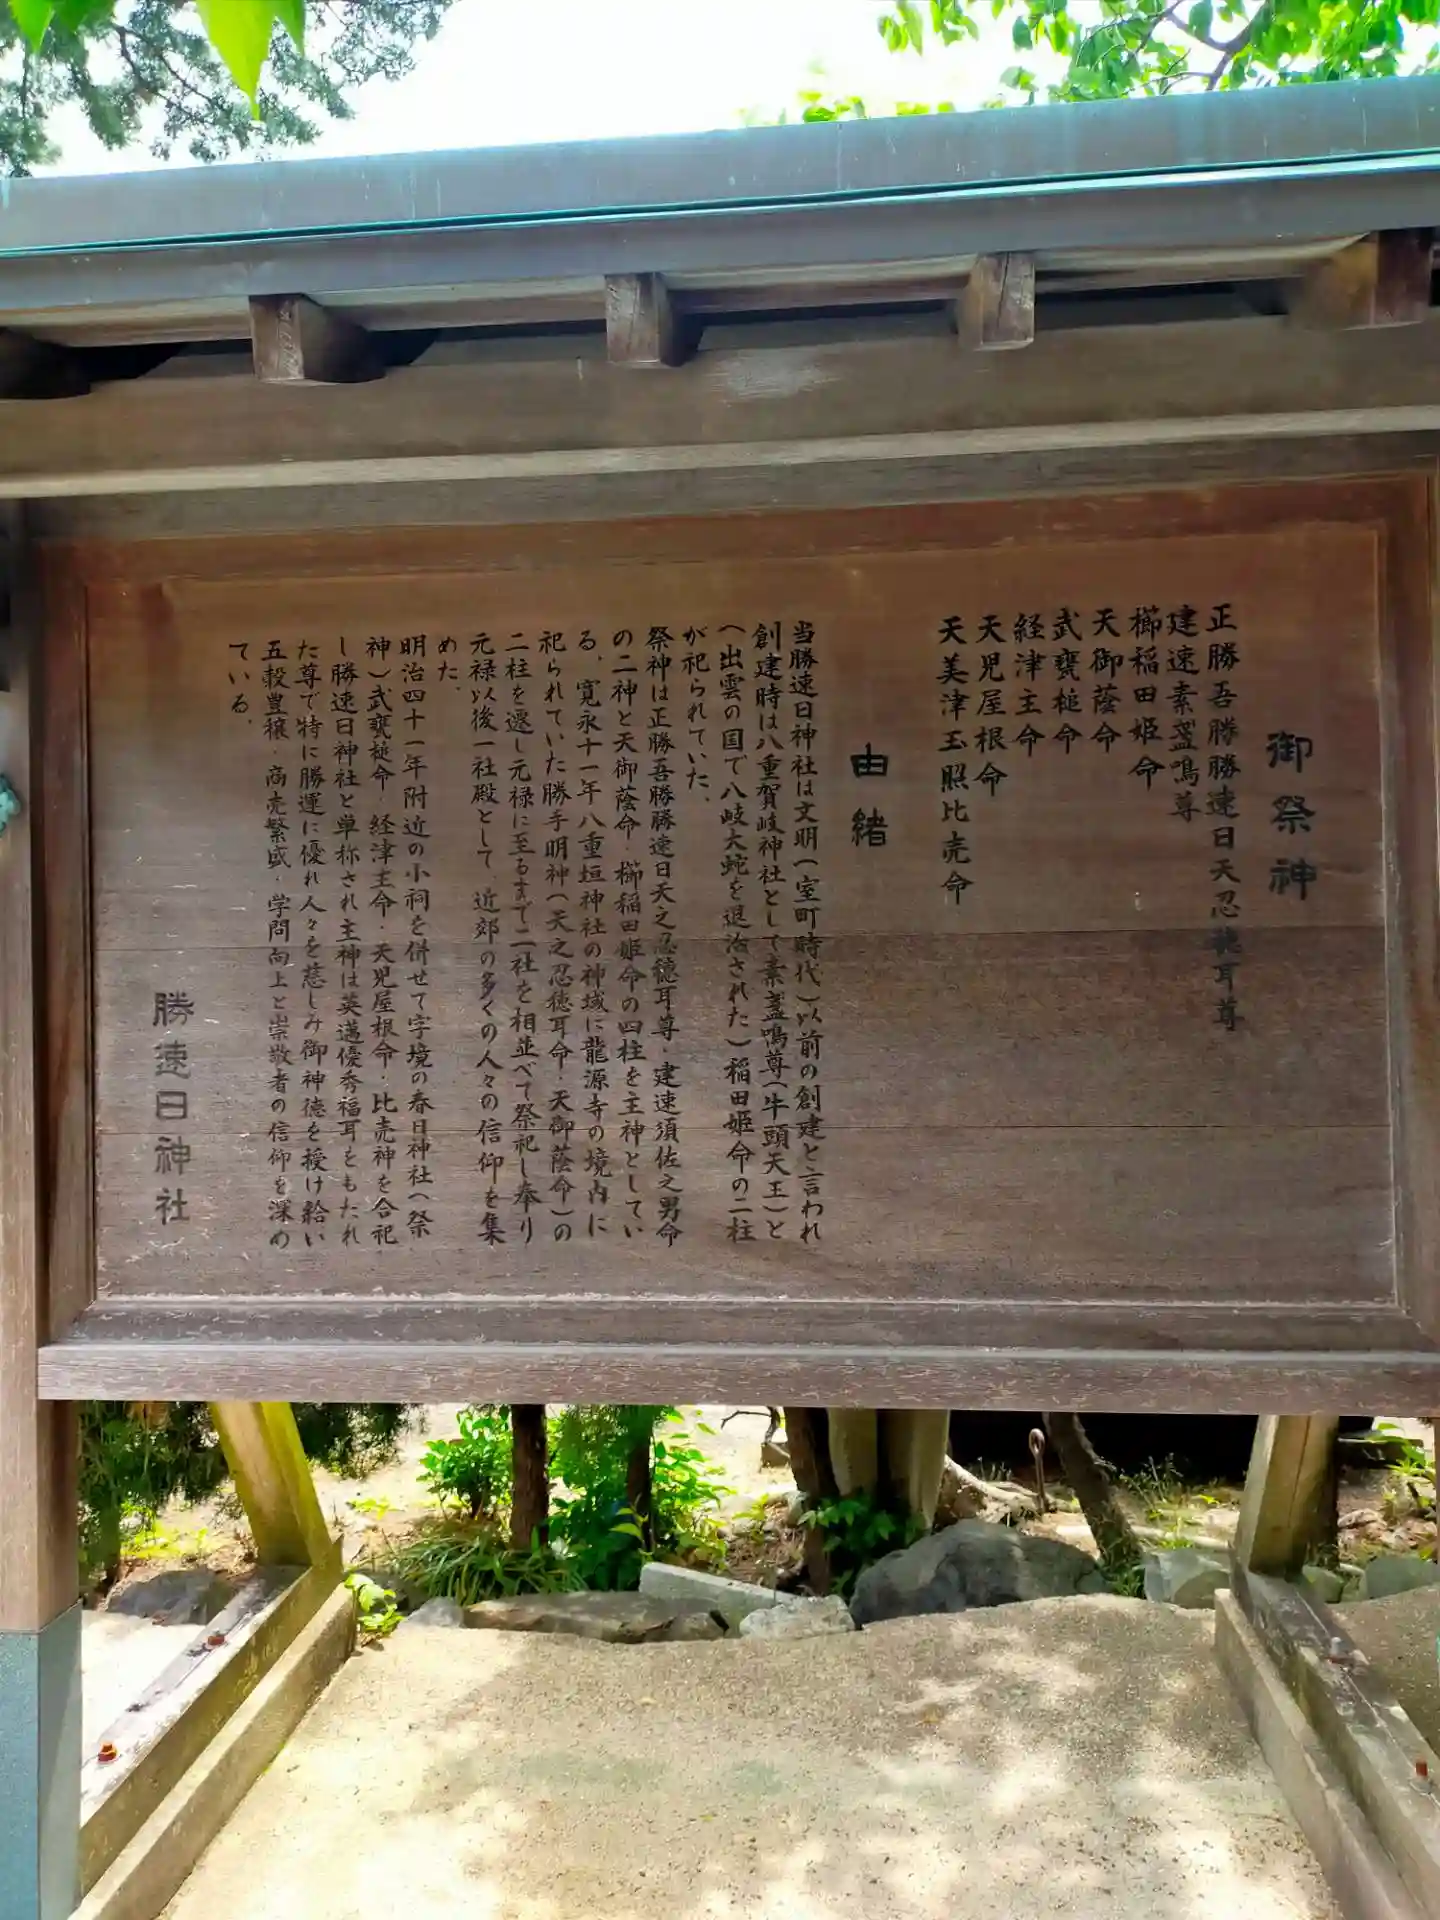 御祭神
正勝吾勝勝速日天忍穂耳尊
建速素盞鳴尊
櫛稲田姫命
天御蔭命
武甕槌命
経津主命
天児屋根命
天美津玉照比売命
由緒
当勝速日神社は文明(室町時代)以前の創建と言われ
創建時は八重賀岐神社として素盞鳴尊(牛頭天王)と
(出雲の国で八岐大蛇を退治された)稲田姫命の二柱
が祀られていた.
祭神は正勝吾勝勝速日天之忍穂耳尊・建速須佐之男命
の二神と天御蔭命・櫛稲田姫命の四柱を主神としてい
る.寛永十一年八重垣神社の神域に龍源寺の境内に
祀られていた勝手明神(天之忍穂耳命・天御蔭命)の
二柱を遷し元禄に至るまで二社を相並べて祭祀し奉り
元禄以後一社殿として近郊の多くの人々の信仰を集
めた.
明治四十一年附近の小祠を併せて字境の春日神社(祭
神)武甕槌命・経津主命・天児屋根命・比売神を合祀
し勝速日神社と単称され主神は英邁優秀福耳をもたれ
た尊で特に勝運に優れ人々を慈しみ御神徳を授け給い
五穀豊穣・商売繁盛・学問向上と崇敬者の信仰を深め
ている.
勝速日神社